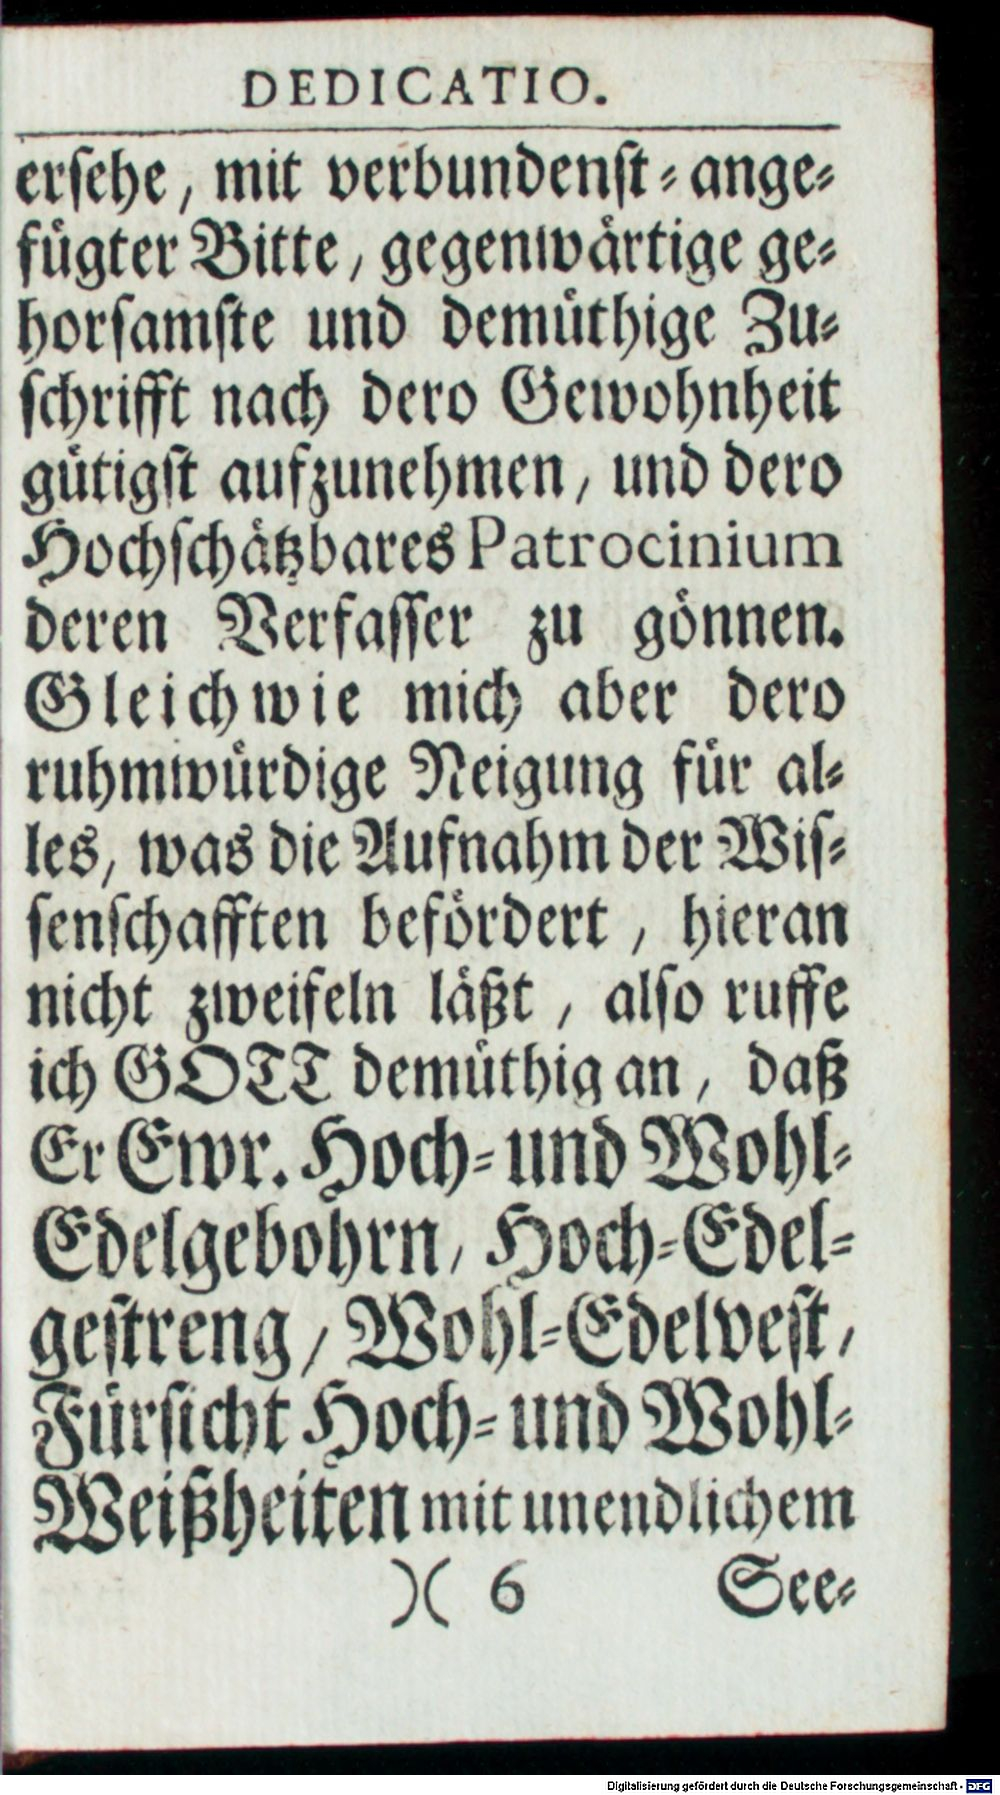 DEDICATIO.
erſehe, mit verbundenſt-ange-
fuͤgter Bitte, gegenwaͤrtige ge-
horſamſte und demuͤthige Zu-
ſchrifft nach dero Gewohnheit
guͤtigſt aufzunehmen, und dero
Hochſchaͤtzbares Patrocinium
deren Verfaſſer zu goͤnnen.
Gleichwie mich aber dero
ruhmwuͤrdige Neigung fuͤr al-
les, was die Aufnahm der Wiſ-
ſenſchafften befoͤrdert, hieran
nicht zweifeln laͤßt, alſo ruffe
ich GOTT demuͤthig an, daß
Er Ewr. Hoch- und Wohl-
Edelgebohrn, Hoch-Edel-
geſtreng, Wohl-Edelveſt,
Fuͤrſicht Hoch- und Wohl-
Weißheiten mit unendlichem
)( 6 See-
Digitalisierung gefördert durch die Deutsche Forschungsgemeinschaft - DFG